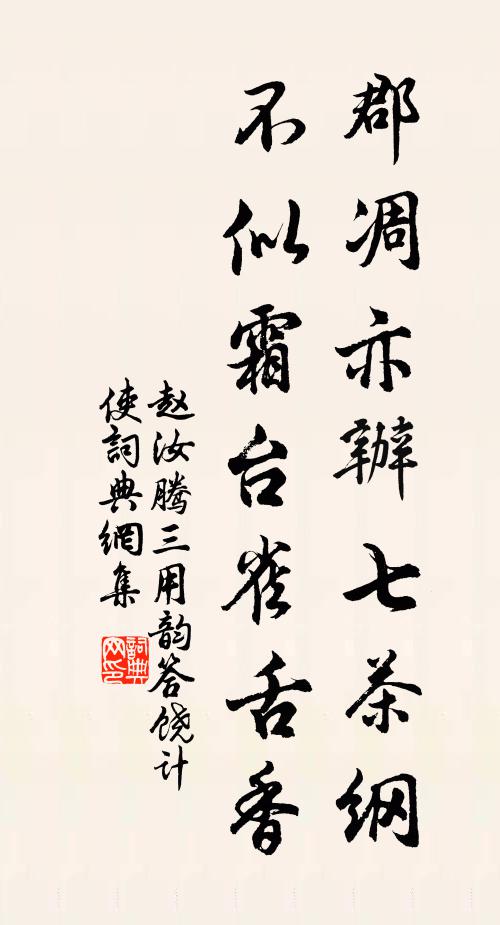 郡凋亦辦七茶纲
不似霜台雀舌香
赵汝腾三用韵答饶计
使詞典網集
詞典
网印